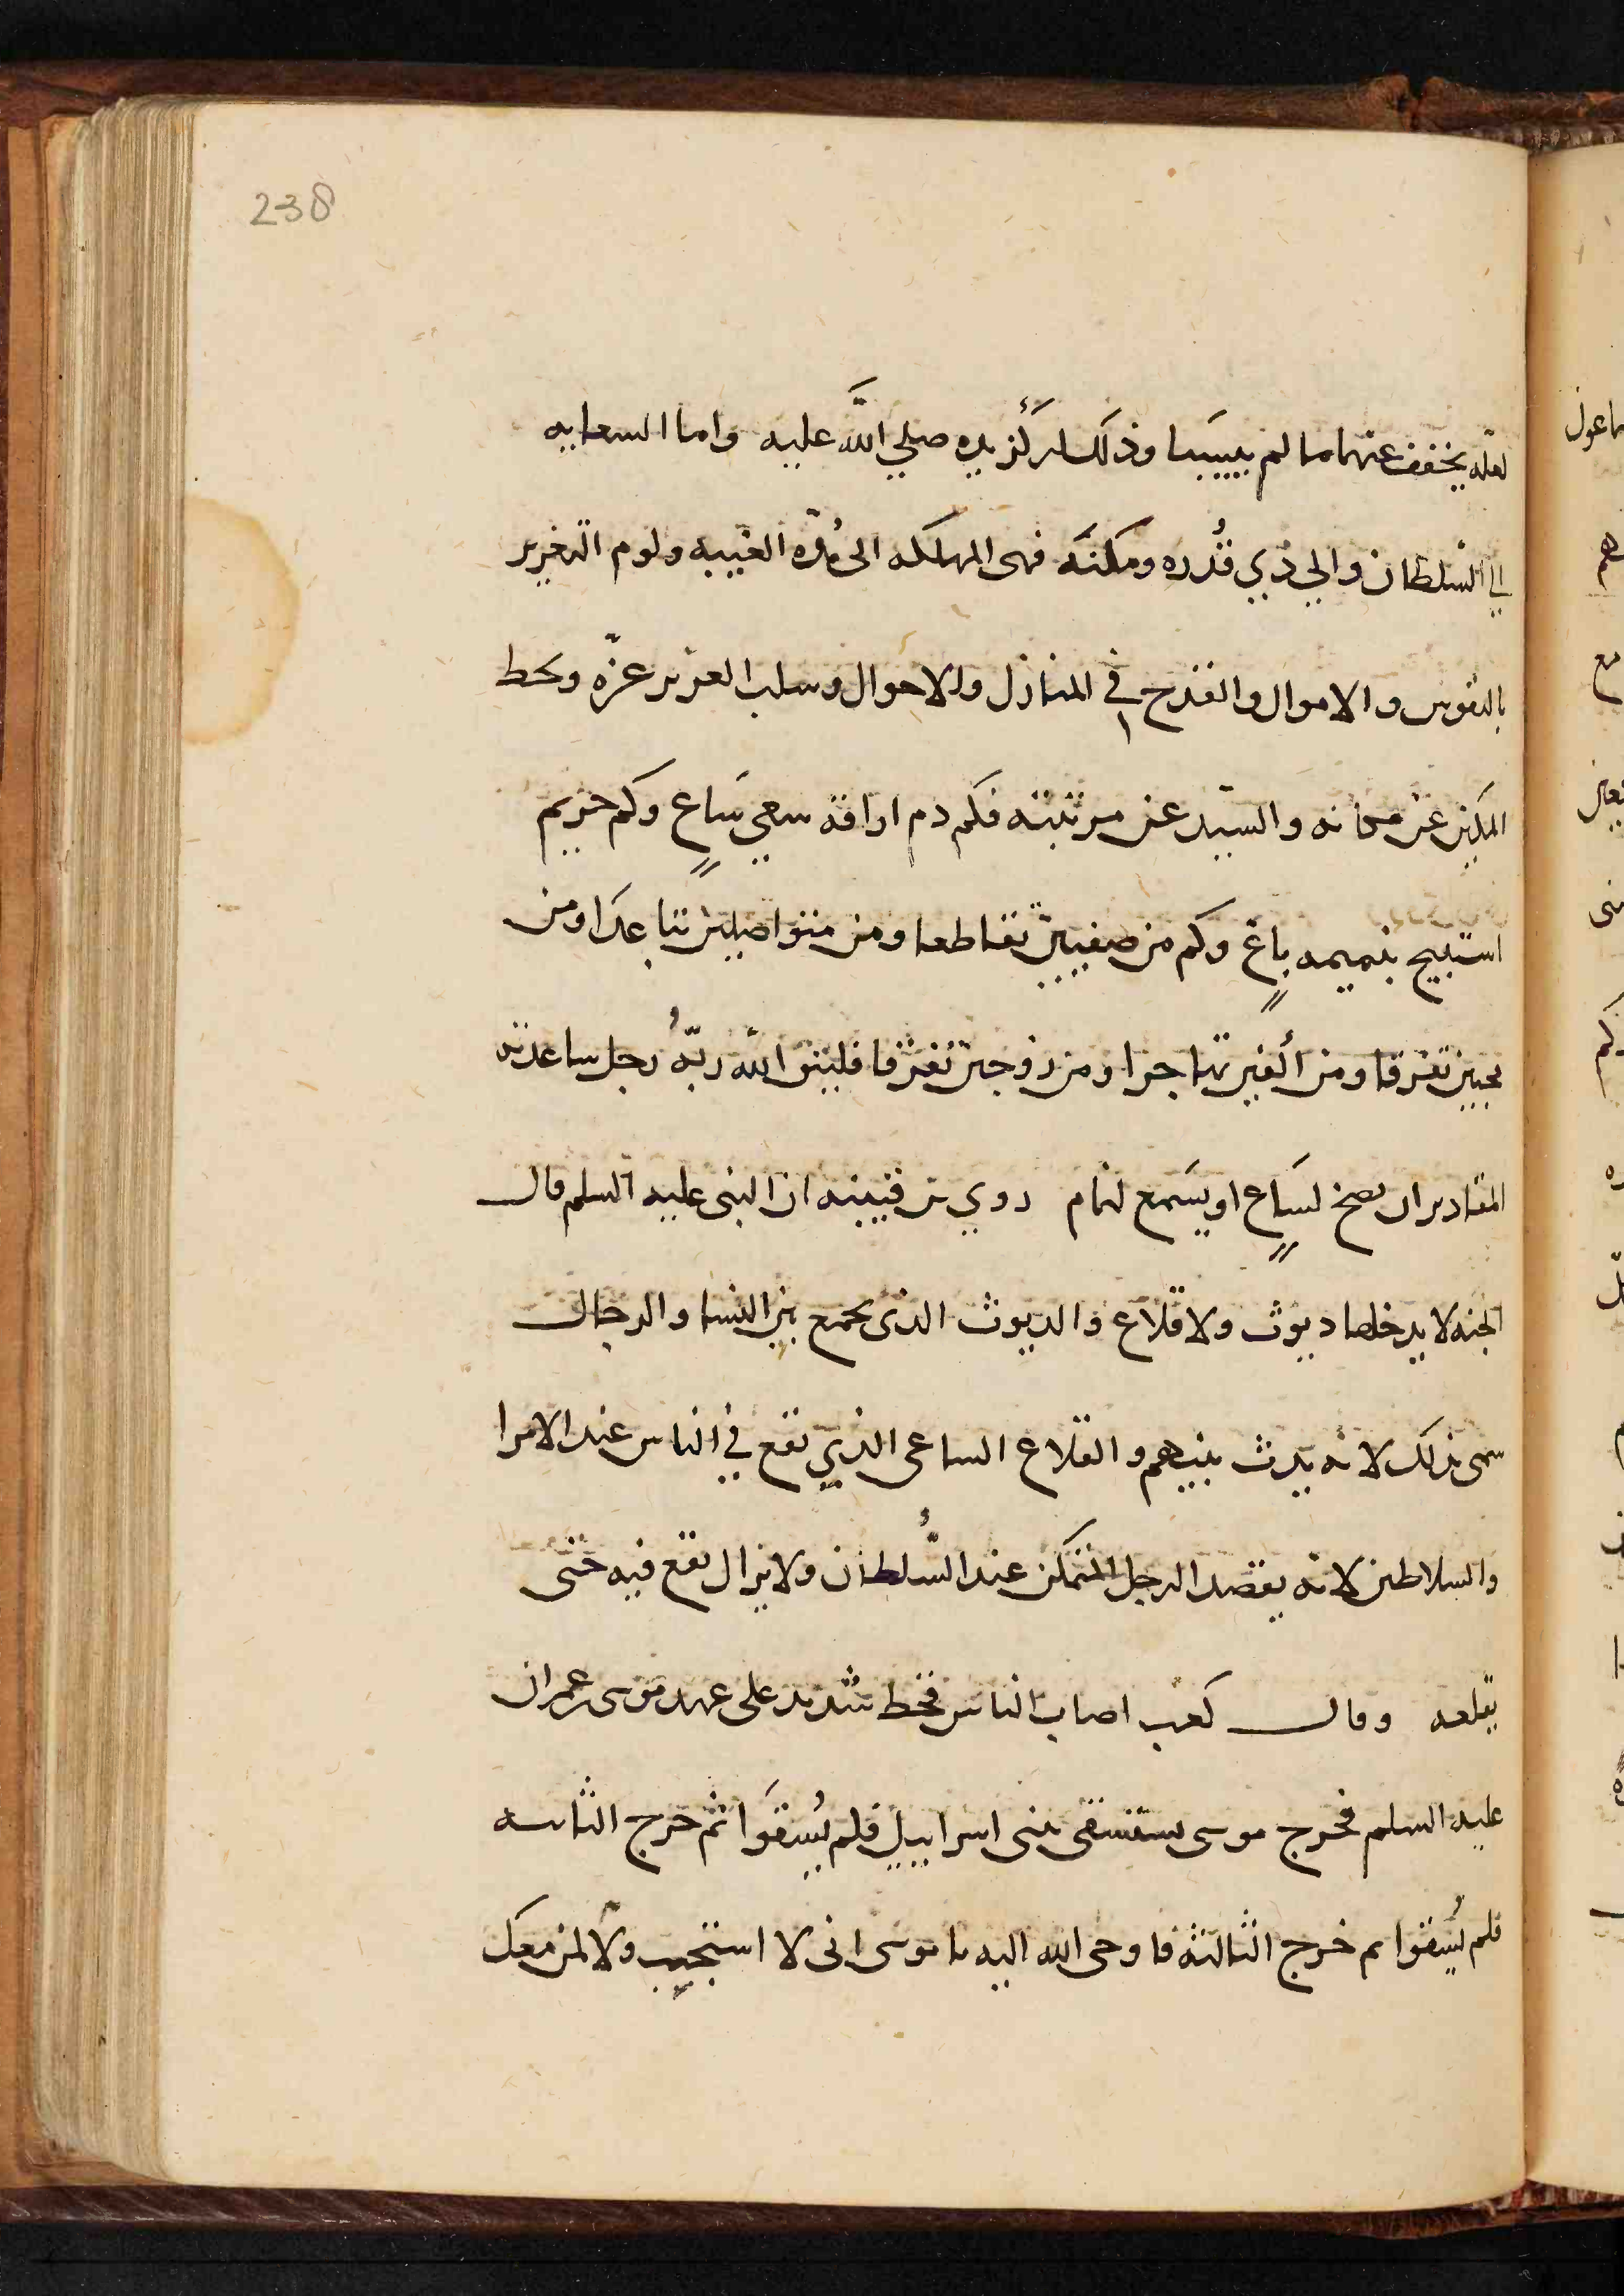 238
لعله يخفف عنهما ما لم ييبسا وذلك لبركة يده صلي الله عليه واما السعايه
الي السلطان والي ذي قدره ومكنه فهى المهلكه الى هذه الغيبه ولوم التغرير
بالنفوس والاموال والقدح في المنازل والاحوال وسلب العزيز عزه ويحط
المكين عن مكانه والسيد عن مرتبته فكم دم اراقه سعي ساع وكم حريم
استبيح بنميمه باغ وكم من صفيين تقاطعا ومن متواصلين تباعدا ومن
محبين تفرقا ومن ألفين تهاجرا ومن زوجين تفرقا فليتق الله ربه رجل ساعدته
المقادير ان يصخ لساع او يسمع لنمام روي بن قتيبه ان النبى عليه السلم قال
الجنه لا يدخلها ديوث ولا قلاع والديوث الذى يجمع بين النسا والرجال
سمى بذلك لانه يدث بينهم والقلاع الساعى الذي يقع في الناس عند الامرا
والسلاطين لانه يقصد الرجل المتمكن عند السلطان ولا يزال يقع فيه حتى
يقلعه وقال كعب اصاب الناس قحط شديد على عهد موسى بن عمران
عليه السلم فخرج موسى يستسقى ببنى اسراييل فلم يُسقَوا ثم خرج الثانيه
فلم يُسقوا ثم خرج الثالثه فاوحى الله اليه يا موسى انى لا استجيب ولا لمن معك